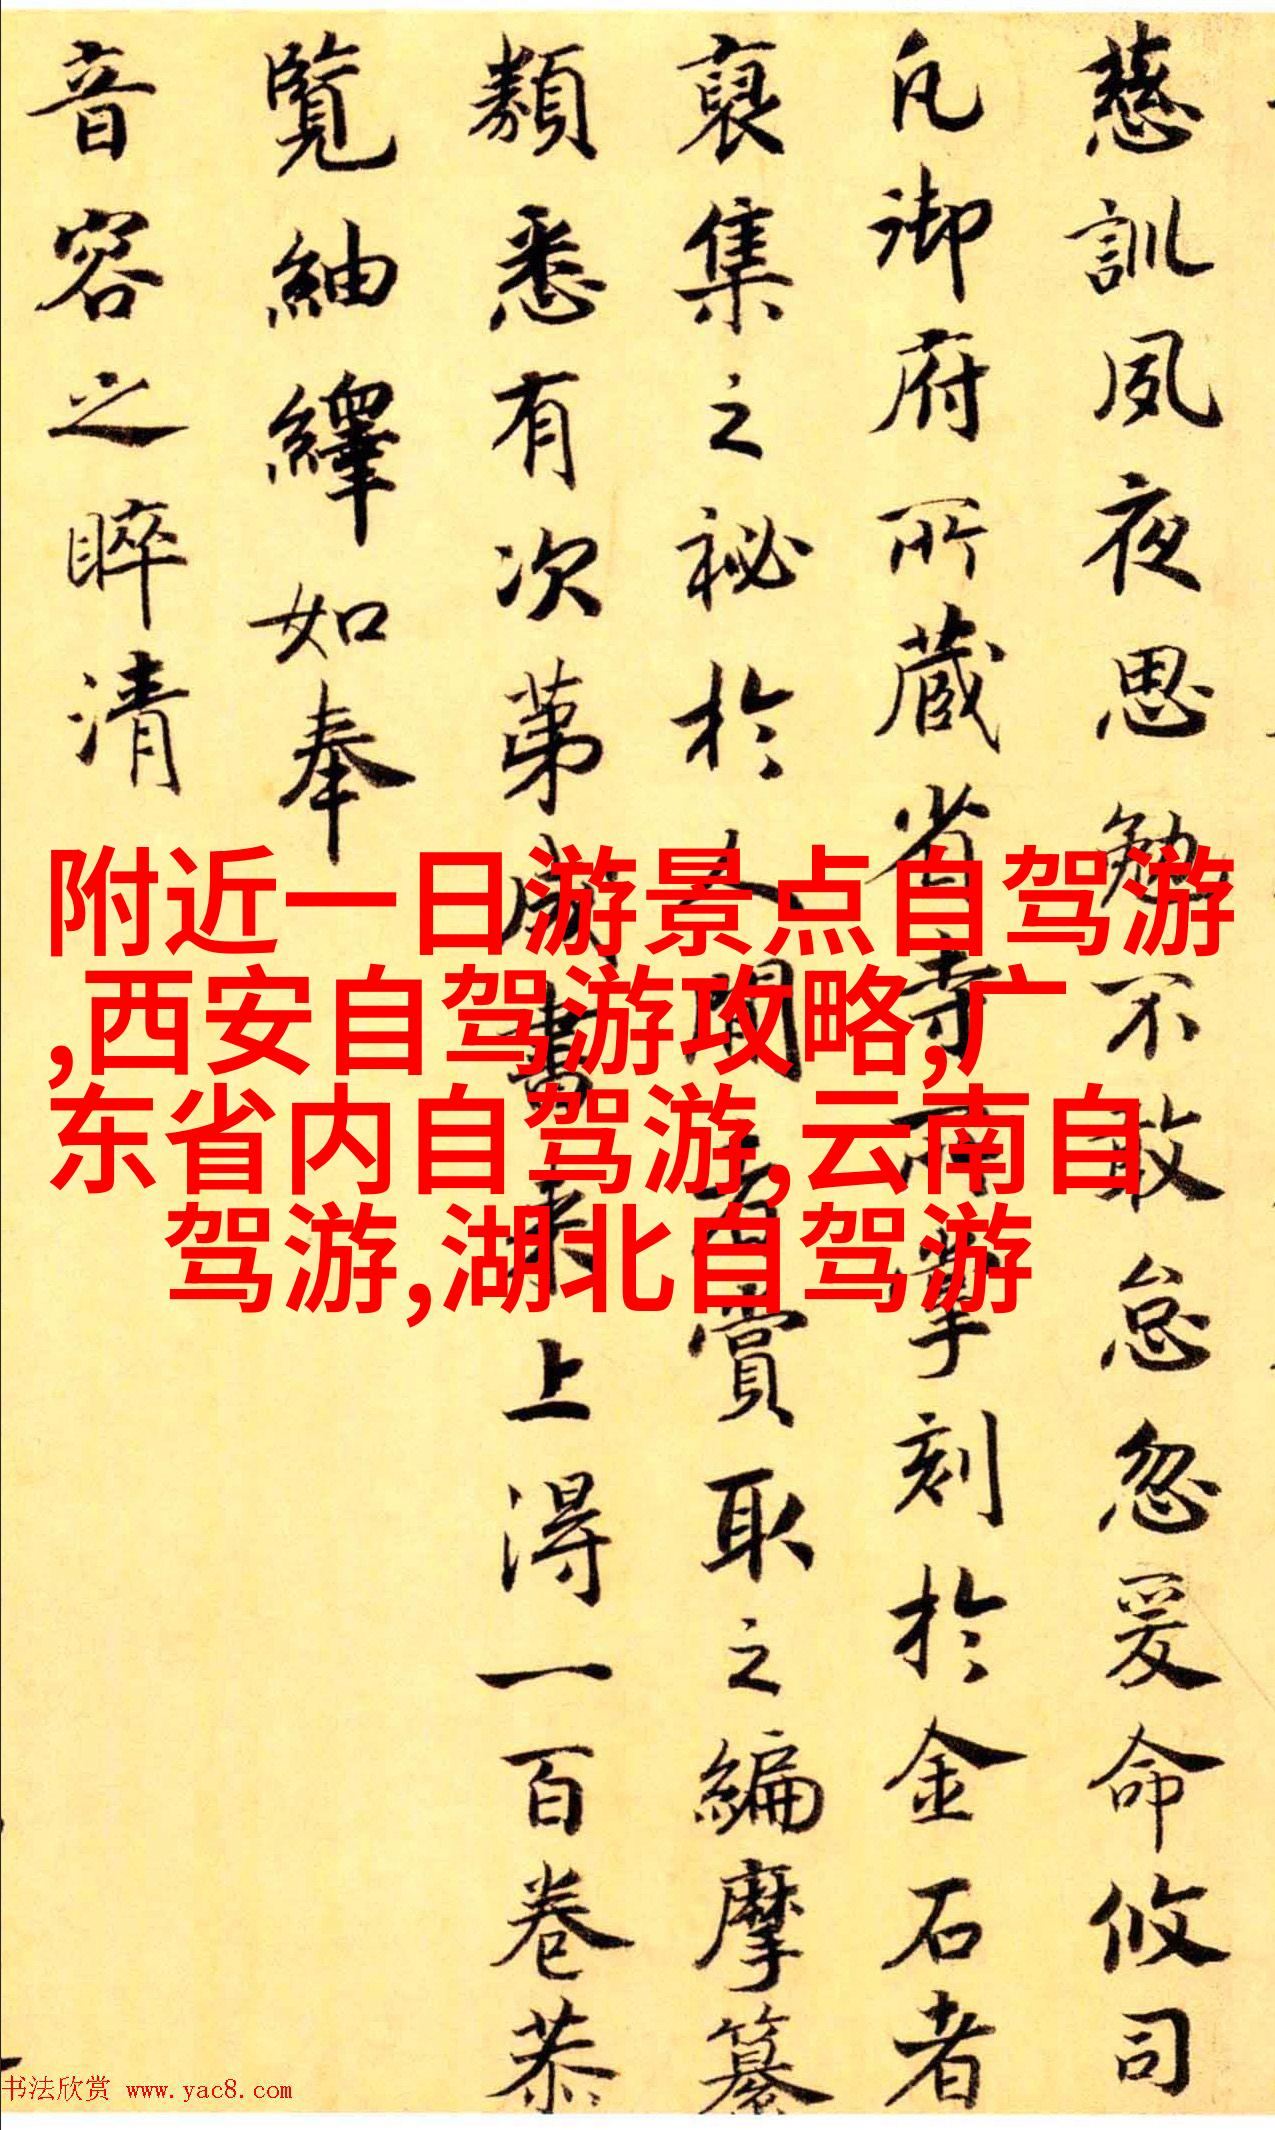 慈訓夙夜思勉不敢怠忽爰命攸司
凡御府所藏省寺所掌刻於金石者
裒集之祕於人間者賞取之編摩纂
類悉有次第成書來上得一百卷恭
覽紬繹如奉
音容之睟清
附近一日游景点自驾游
,西安自驾游攻略,广
东省内自驾游,云南自
驾游,湖北自驾游
书法欣赏 www.yac8.com